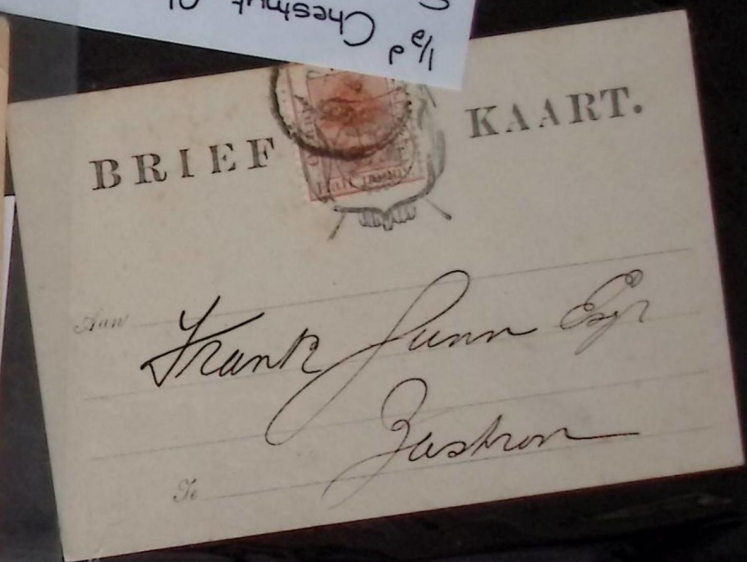 ½d Chestnut
BRIEF KAART.
Half Penny
Aan Frank Gunn Esqr
Zastron
Te